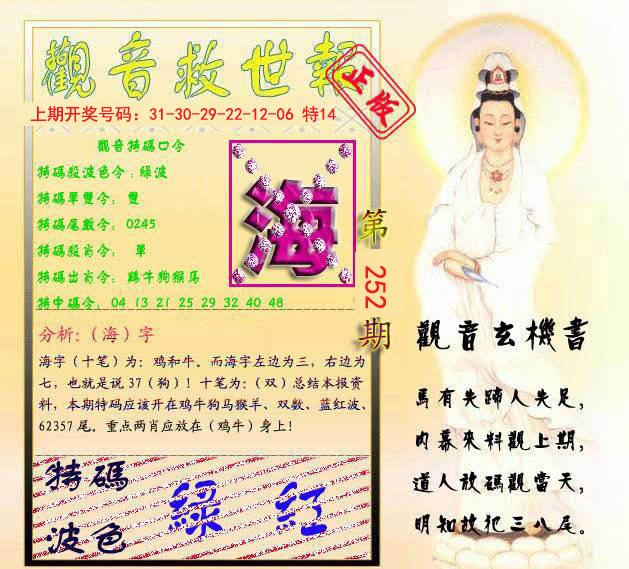 觀音救世報
正版
上期开奖号码：31-30-29-22-12-06 特14
觀音特碼口令
特碼殺波色令：綠波
特碼單雙令： 雙
特碼尾數令： 0245
特碼殺肖令： 單
特碼出肖令： 鷄牛狗猴馬
特中碼令： 04 13 21 25 29 32 40 48
海
第
252
期
分析：（海）字
海字（十笔）为：鸡和牛。而海字左边为三，右边为
七，也就是说37（狗）！十笔为：（双）总结本报资
料，本期特码应该开在鸡牛狗马猴羊、双数、蓝红波、
62357尾。重点两肖应放在（鸡牛）身上！
特碼
波色
綠 紅
觀音玄機書
馬有失蹄人失足，
内幕來料觀上期，
道人放碼觀當天，
明知故犯三八尾。